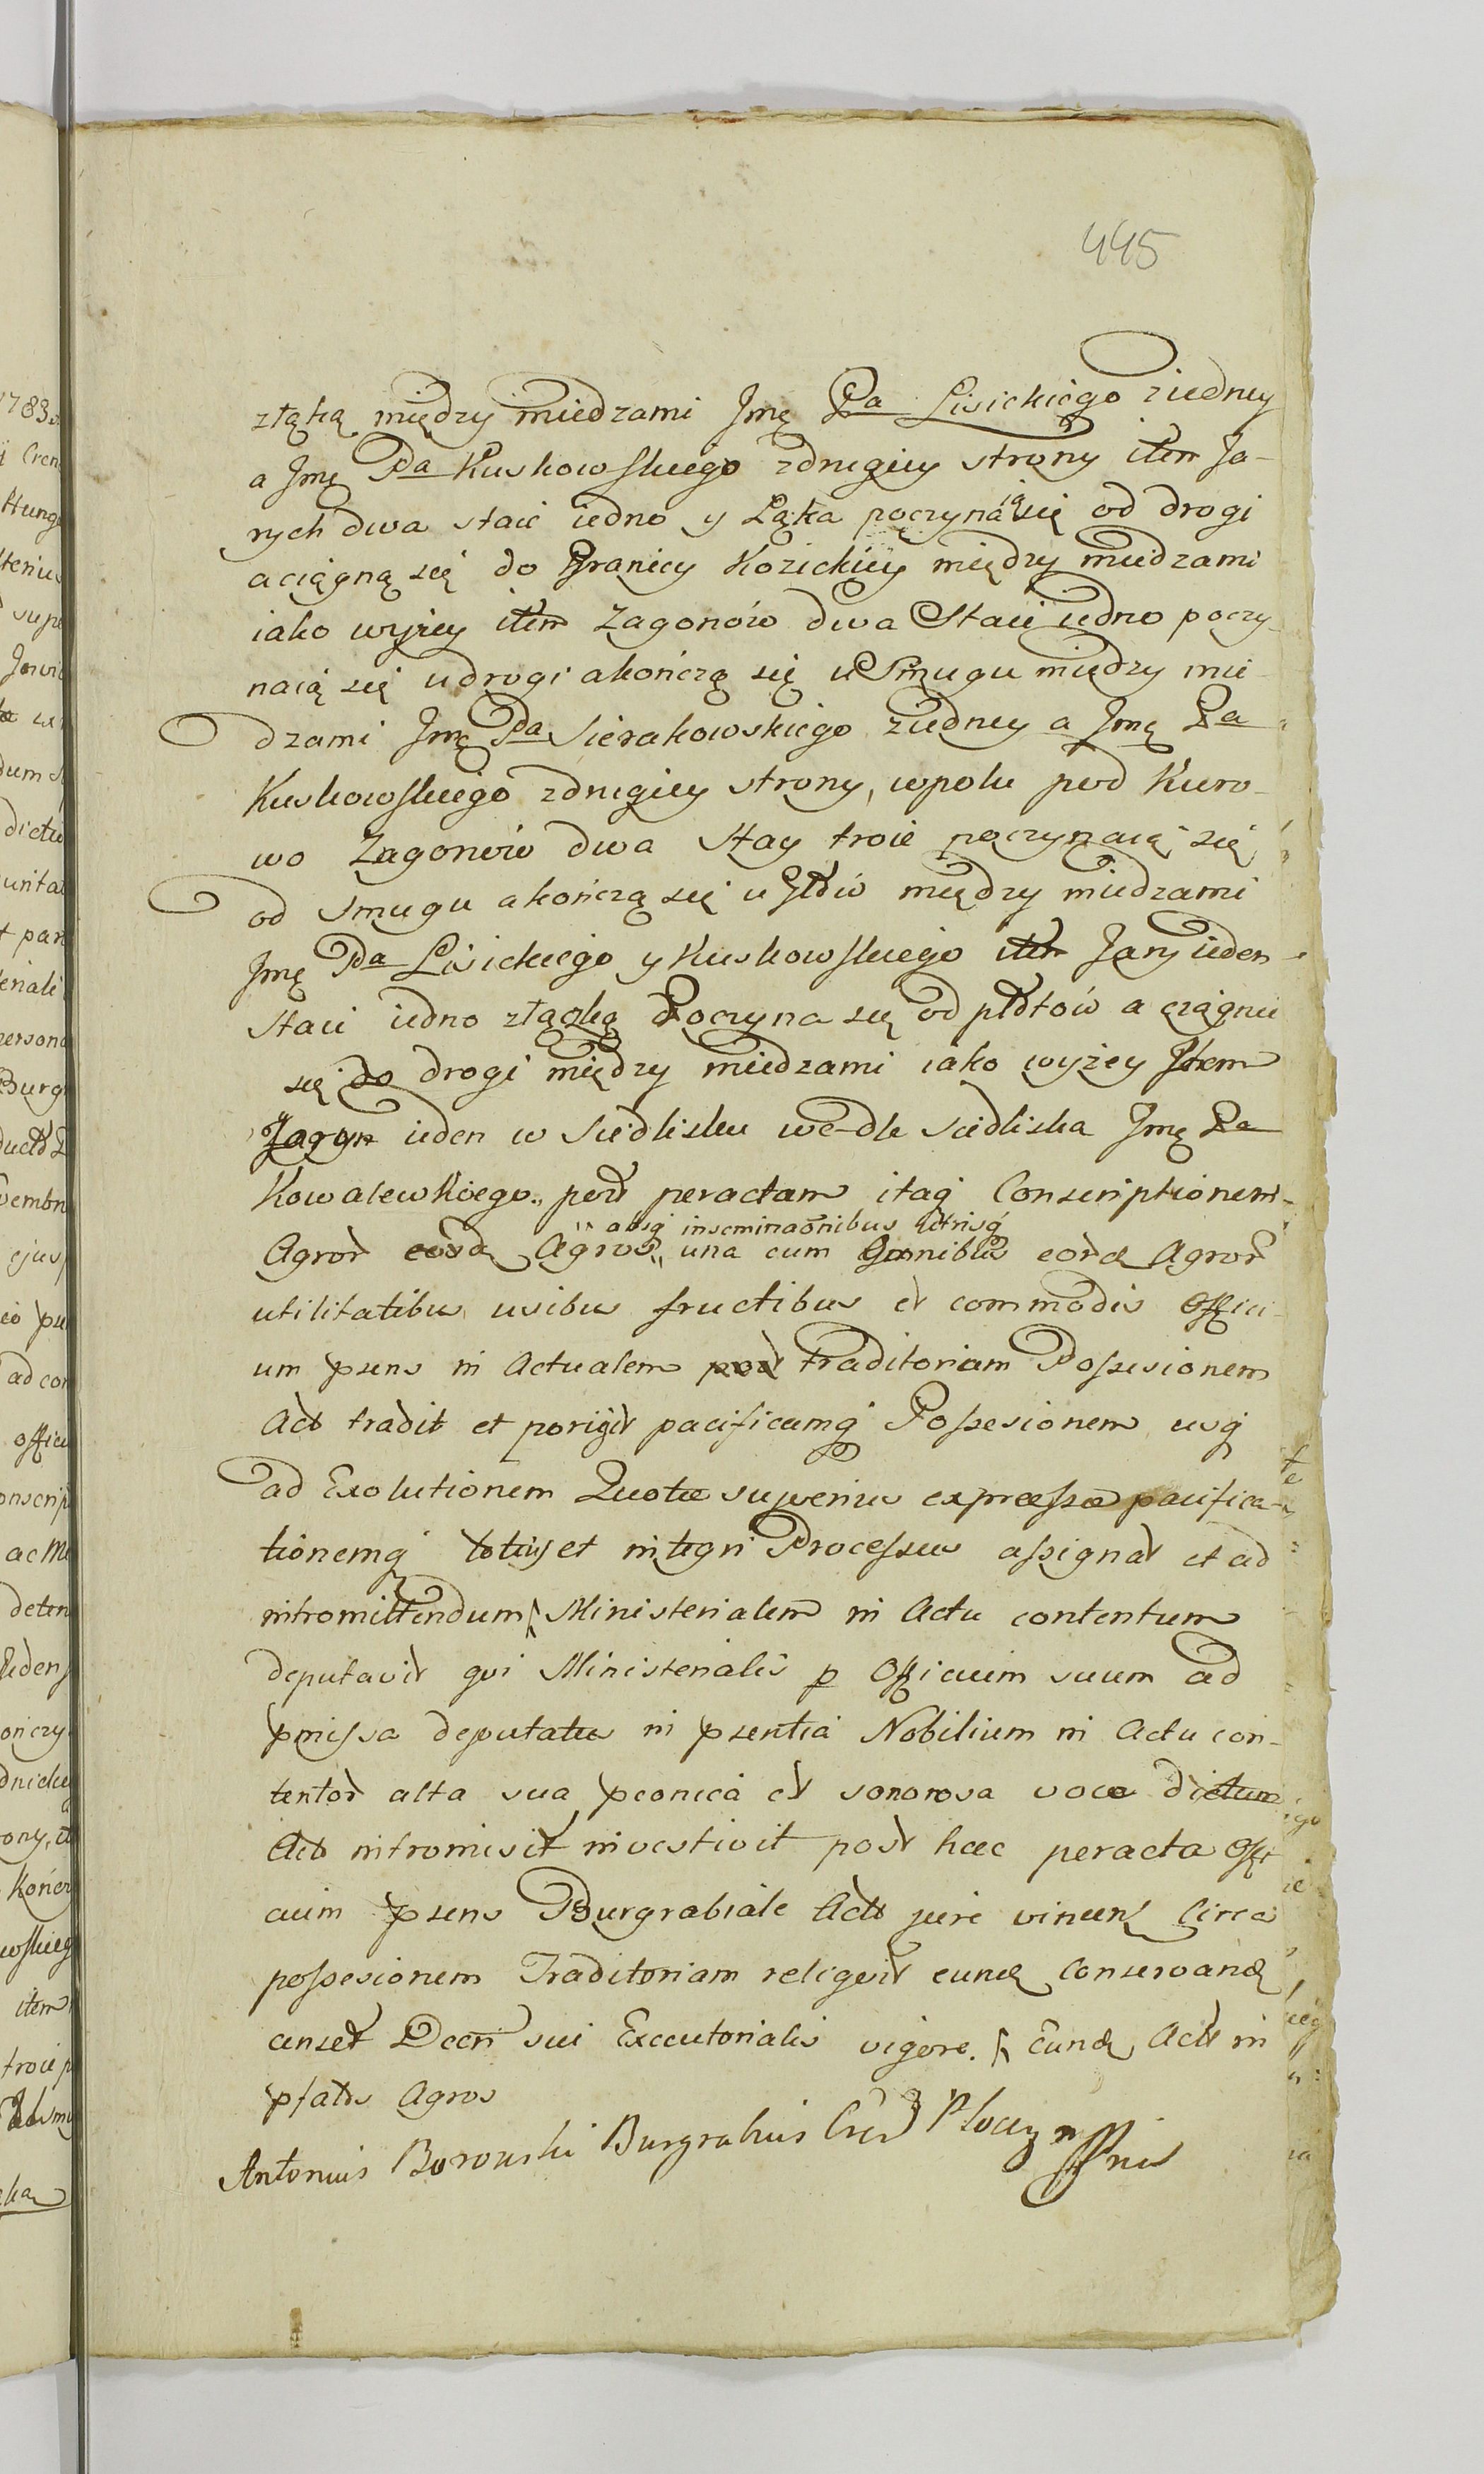 445
złąką między miedzami Jmę Pa Lisickiego ziedney
a Jmę Pa Kuskowskiego zdrugiey strony item Ja-
rych dwa staie iedno y Łąka poczyna ią się od drogi
aciągną się do Granicy Kozickiey między miedzami
iako wyżey item Zagonów dwa Staie iedno poczy-
naią się udrogi akończą się u Smugu między mie-
dzami Jmę Pa Sierakowskiego ziedney a Jmę Pa
Kuskowskiego zdrugiey strony, wpolu pod Kuro-
wo Zagonów dwa Stay troie poczynaią się
od Smugu akończą się u między miedzami
Jmę Pa Lisickiego y Kuskowskiego item Jary ieden
Staie iedno złączką Poczyna się od płotów a ciągnie
się do drogi między miedzami iako wyżey Item
Zagon ieden w Siedlisku we dle siedliska Jmę Pa
Kowalewskiego post peractam itaq Conscriptionem
absq inseminaonibus utrisq
Agror eosd Agros una cum omnibus eord Agror
utilitatibus usibus fructibus et commodis Offici-
um psens in Actualem traditoriam Possesionem
Act tradit et porigit pacificamq Possesionem usq
ad Exolutionem Quotæ superius expressæ pacifica-
tionemq totius et integri Processus assignat et ad
intromittendum Ministerialem in Actu contentum
deputavit qui Ministerialis p Officium suum ad
pmissa deputatus in psentia Nobilium in Actu con-
tentor alta sua pconica et sonorosa voce dictum
Act intromisit investivit post hæc peracta Offi
cium psens Burgrabiale Act jure vincen Circa
possesionem Traditoriam reliquit eund Conservand
censet Decri sui Executorialis vigore. Eund Act in
pfatos Agros
Antonius Borowski Burgrabius Plocen